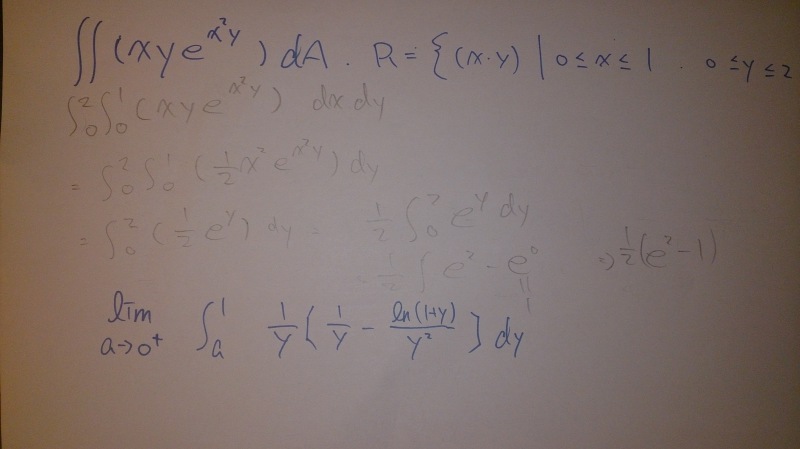 ∬(xye^{x²y}) dA . R = {(x·y) | 0≤x≤1 . 0≤y≤2
∫₀²∫₀¹(xye^{x²y}) dx dy
= ∫₀²∫₀¹ (½x²e^{x²y}) dy
= ∫₀² (½e^y) dy = ½∫₀² e^y dy
= ½∫ e² - e⁰ ⇒ ½(e²-1)
॥
1
lim_{a→0⁺} ∫ₐ¹ 1/y [1/y - ln(1+y)/y²] dy